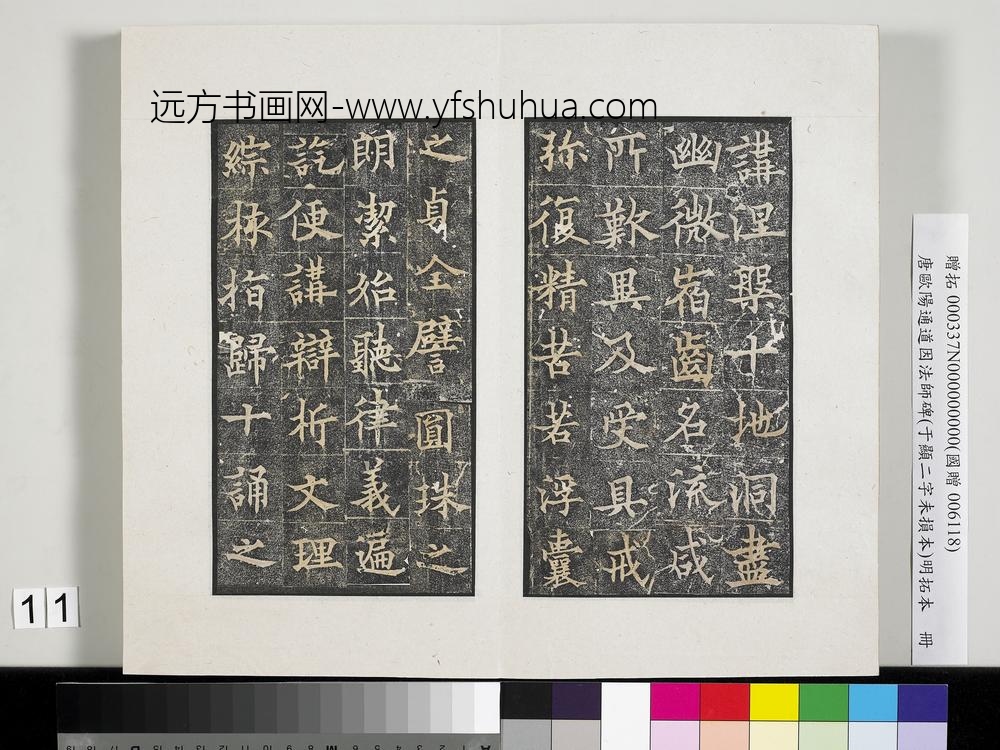 远方书画网-www.yfshuhua.com
講涅槃十地洞盡
幽微宿齒名流咸
所歎異及受具戒
弥復精苦若浮囊
之貞全譬圓珠之
朗潔始聽律義遍
訖便講辯析文理
綜核指歸十誦之
贈拓 000337N000000000(國贈 006118)
唐歐陽通道因法師碑(于顯二字未損本)明拓本 冊
11